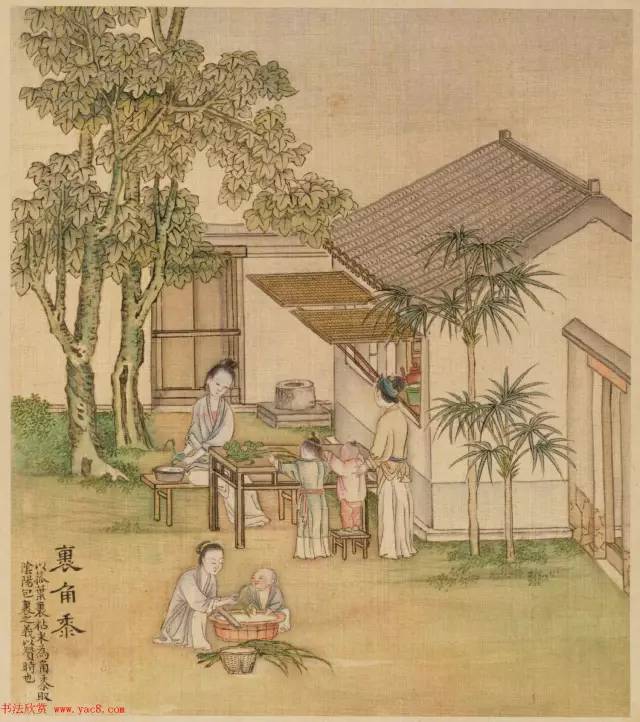 裹角黍
以菰葉裹粘米為角黍取
陰陽包裹之義以贊時也
书法欣赏 www.yac8.com